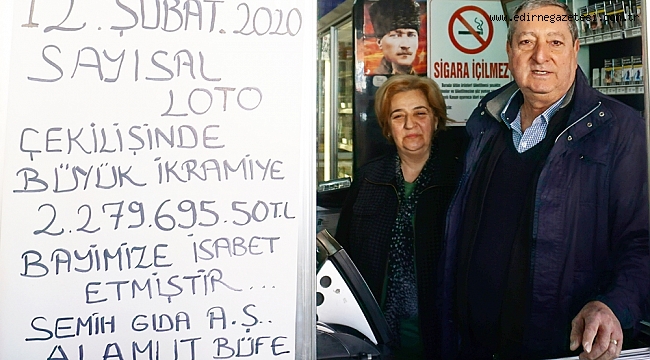 12 ŞUBAT.2020
SAYISAL
LOTO
ÇEKİLİŞİNDE
BÜYÜK İKRAMİYE
2.279.695.50TL
BAYİMİZE İSABET
ETMİŞTİR...
SEMİH GIDA A.Ş..
ALAMUT BÜFE
SİGARA İÇİLMEZ
www.edirnegazetesi.com.tr